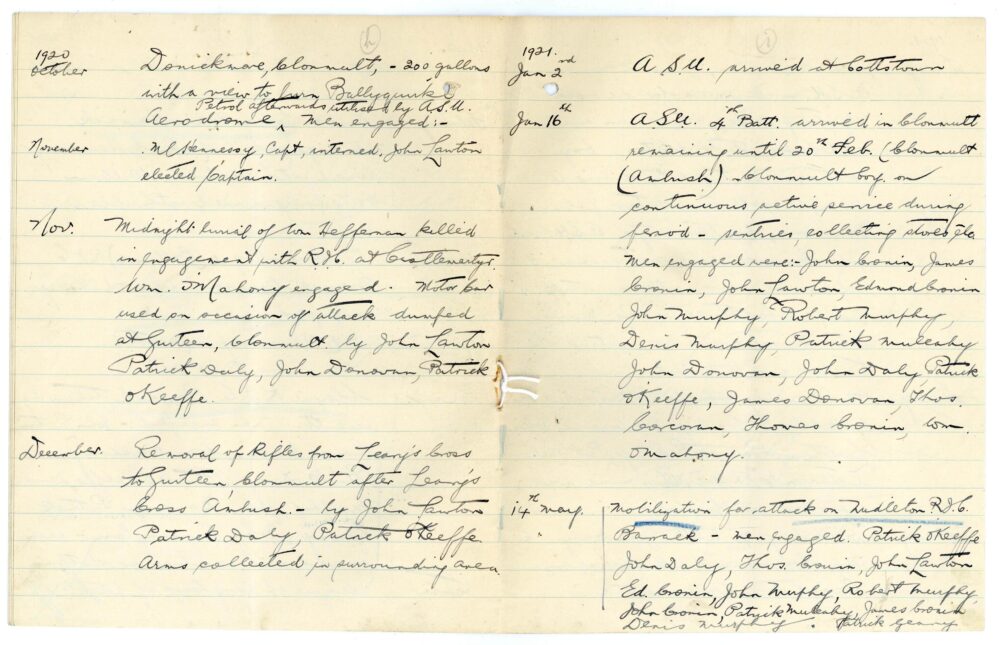 (h)
1920
October
Donickmore, Clonmult, - 200 gallons
with a view to burn Ballyquirk
Petrol afterwards utilised by A.S.U.
Aerodrome ^ Men engaged:-
November
M Hennessy, Capt, interned. John Lawton
elected Captain.
Nov.
Midnight burial of Wm Heffernan killed
in engagement with R.I.C. at Castlemartyr.
Wm. O'Mahony engaged. Motor Car
used on occasion of attack dumped
at Gurteen, Clonmult by John Lawton
Patrick Daly, John Donovan, Patrick
O'Keeffe.
December
Removal of Rifles from Leary's Cross
to Gurteen Clonmult after Leary's
Cross Ambush. - by John Lawton
Patrick Daly, Patrick O'Keeffe
Arms collected in surrounding area.
(i)
1921.
Jan 2nd
A S.U. arrived at Cottstown
Jan 16th
A.S.U. 4th Batt. arrived in Clonmult
remaining until 20th Feb. (Clonmult
(Ambush) Clonmult Coy. on
continuous active service during
period - sentries, collecting stores etc
Men engaged were:- John Cronin, James
Cronin, John Lawton, Edmond Cronin
John Murphy, Robert Murphy,
Denis Murphy, Patrick Mulcahy
John Donovan, John Daly, Patrick
O'Keeffe, James Donovan, Thos.
Corcoran, Thomas Cronin, Wm.
O'Mahony.
14th May.
Mobilization for attack on Midleton R.I.C.
Barrack - men engaged. Patrick O'Keeffe
John Daly, Thos. Cronin, John Lawton
Ed. Cronin, John Murphy, Robert Murphy,
John Cronin, Patrick Mulcahy, James Cronin
Denis Murphy. Patrick Geary